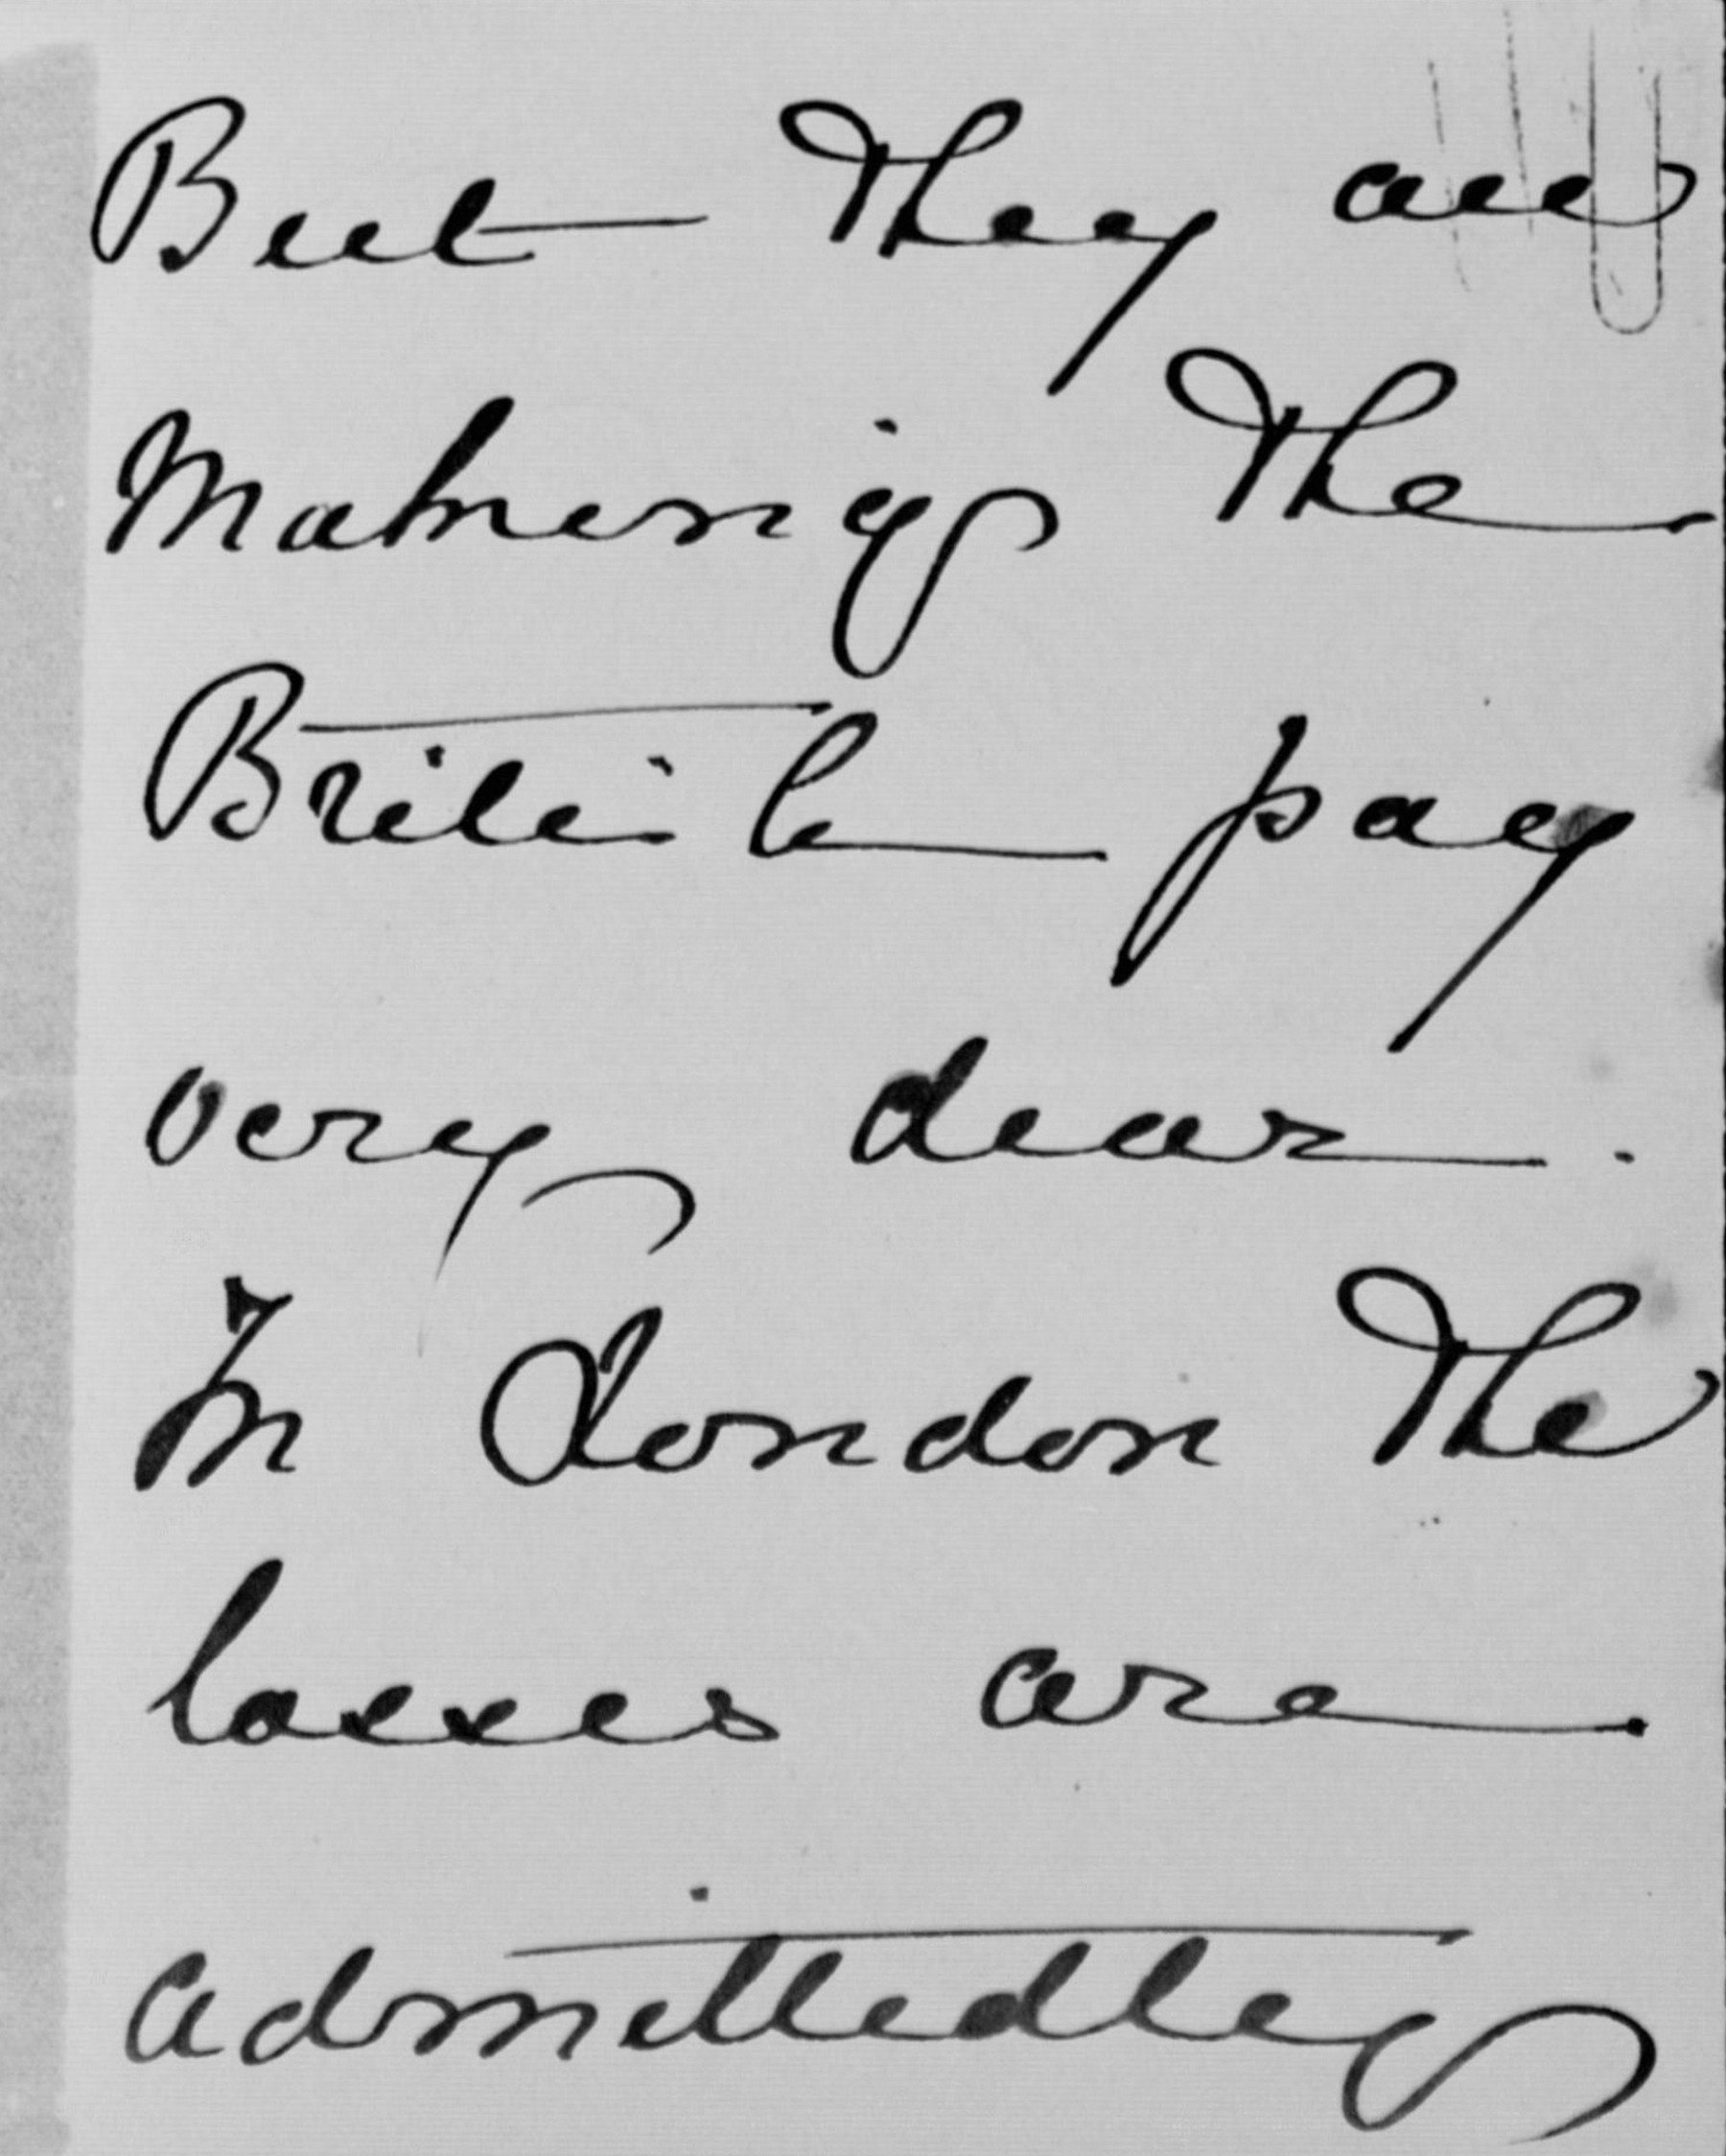 But They are
Making The
British pay
very dear.
In London The
losses are
admittedly